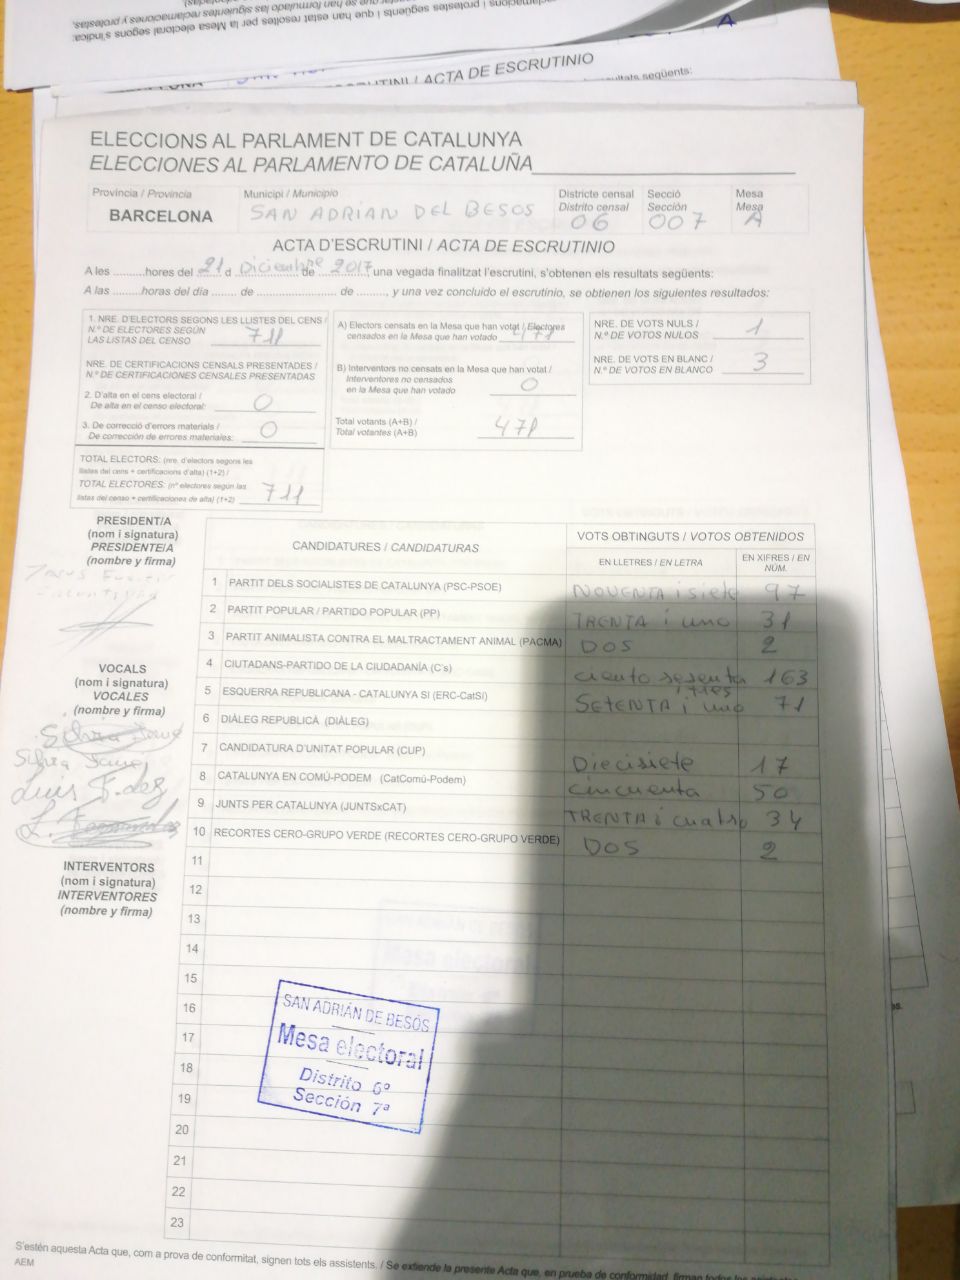 ACTA DE ESCRUTINIO
ELECCIONS AL PARLAMENT DE CATALUNYA
ELECCIONES AL PARLAMENTO DE CATALUÑA
Província / Provincia Municipi / Municipio Districte censal Secció Mesa
Distrito censal Sección Mesa
BARCELONA SAN ADRIAN DEL BESOS 06 007 A
ACTA D'ESCRUTINI / ACTA DE ESCRUTINIO
A les ..........hores del 21 d Diciembre de 2017, una vegada finalitzat l'escrutini, s'obtenen els resultats següents:
A las .........horas del día ....... de ........................ de ........., y una vez concluido el escrutinio, se obtienen los siguientes resultados:
1. NRE. D'ELECTORS SEGONS LES LLISTES DEL CENS /
N.º DE ELECTORES SEGÚN
LAS LISTAS DEL CENSO 711
NRE. DE CERTIFICACIONS CENSALS PRESENTADES /
N.º DE CERTIFICACIONES CENSALES PRESENTADAS
2. D'alta en el cens electoral /
De alta en el censo electoral: 0
3. De correcció d'errors materials /
De corrección de errores materiales: 0
TOTAL ELECTORS: (nre. d'electors segons les
llistes del cens + certificacions d'alta) (1+2) /
TOTAL ELECTORES: (nº electores según las
listas del censo + certificaciones de alta) (1+2) 711
A) Electors censats en la Mesa que han votat / Electores
censados en la Mesa que han votado 471
B) Interventors no censats en la Mesa que han votat /
Interventores no censados
en la Mesa que han votado 0
Total votants (A+B) /
Total votantes (A+B) 471
NRE. DE VOTS NULS /
N.º DE VOTOS NULOS 1
NRE. DE VOTS EN BLANC /
N.º DE VOTOS EN BLANCO 3
PRESIDENT/A
(nom i signatura)
PRESIDENTE/A
(nombre y firma)
VOCALS
(nom i signatura)
VOCALES
(nombre y firma)
Silvia
Luis F.dez
INTERVENTORS
(nom i signatura)
INTERVENTORES
(nombre y firma)
CANDIDATURES / CANDIDATURAS VOTS OBTINGUTS / VOTOS OBTENIDOS
EN LLETRES / EN LETRA EN XIFRES / EN NÚM.
1 PARTIT DELS SOCIALISTES DE CATALUNYA (PSC-PSOE) NOVENTA i siete 97
2 PARTIT POPULAR / PARTIDO POPULAR (PP) TRENTA i uno 31
3 PARTIT ANIMALISTA CONTRA EL MALTRACTAMENT ANIMAL (PACMA) DOS 2
4 CIUTADANS-PARTIDO DE LA CIUDADANÍA (C's) ciento sesenta i tres 163
5 ESQUERRA REPUBLICANA - CATALUNYA SÍ (ERC-CatSí) SETENTA i uno 71
6 DIÀLEG REPUBLICÀ (DIÀLEG)
7 CANDIDATURA D'UNITAT POPULAR (CUP) Diecisiete 17
8 CATALUNYA EN COMÚ-PODEM (CatComú-Podem) cincuenta 50
9 JUNTS PER CATALUNYA (JUNTSxCAT) TRENTA i cuatro 34
10 RECORTES CERO-GRUPO VERDE (RECORTES CERO-GRUPO VERDE) DOS 2
11
12
13
14
15
16
17
18
19
20
21
22
23
SAN ADRIÁN DE BESÓS
Mesa electoral
Distrito 6º
Sección 7ª
S'estén aquesta Acta que, com a prova de conformitat, signen tots els assistents. / Se extiende la presente Acta que, en prueba de conformidad, firman todos los
AEM